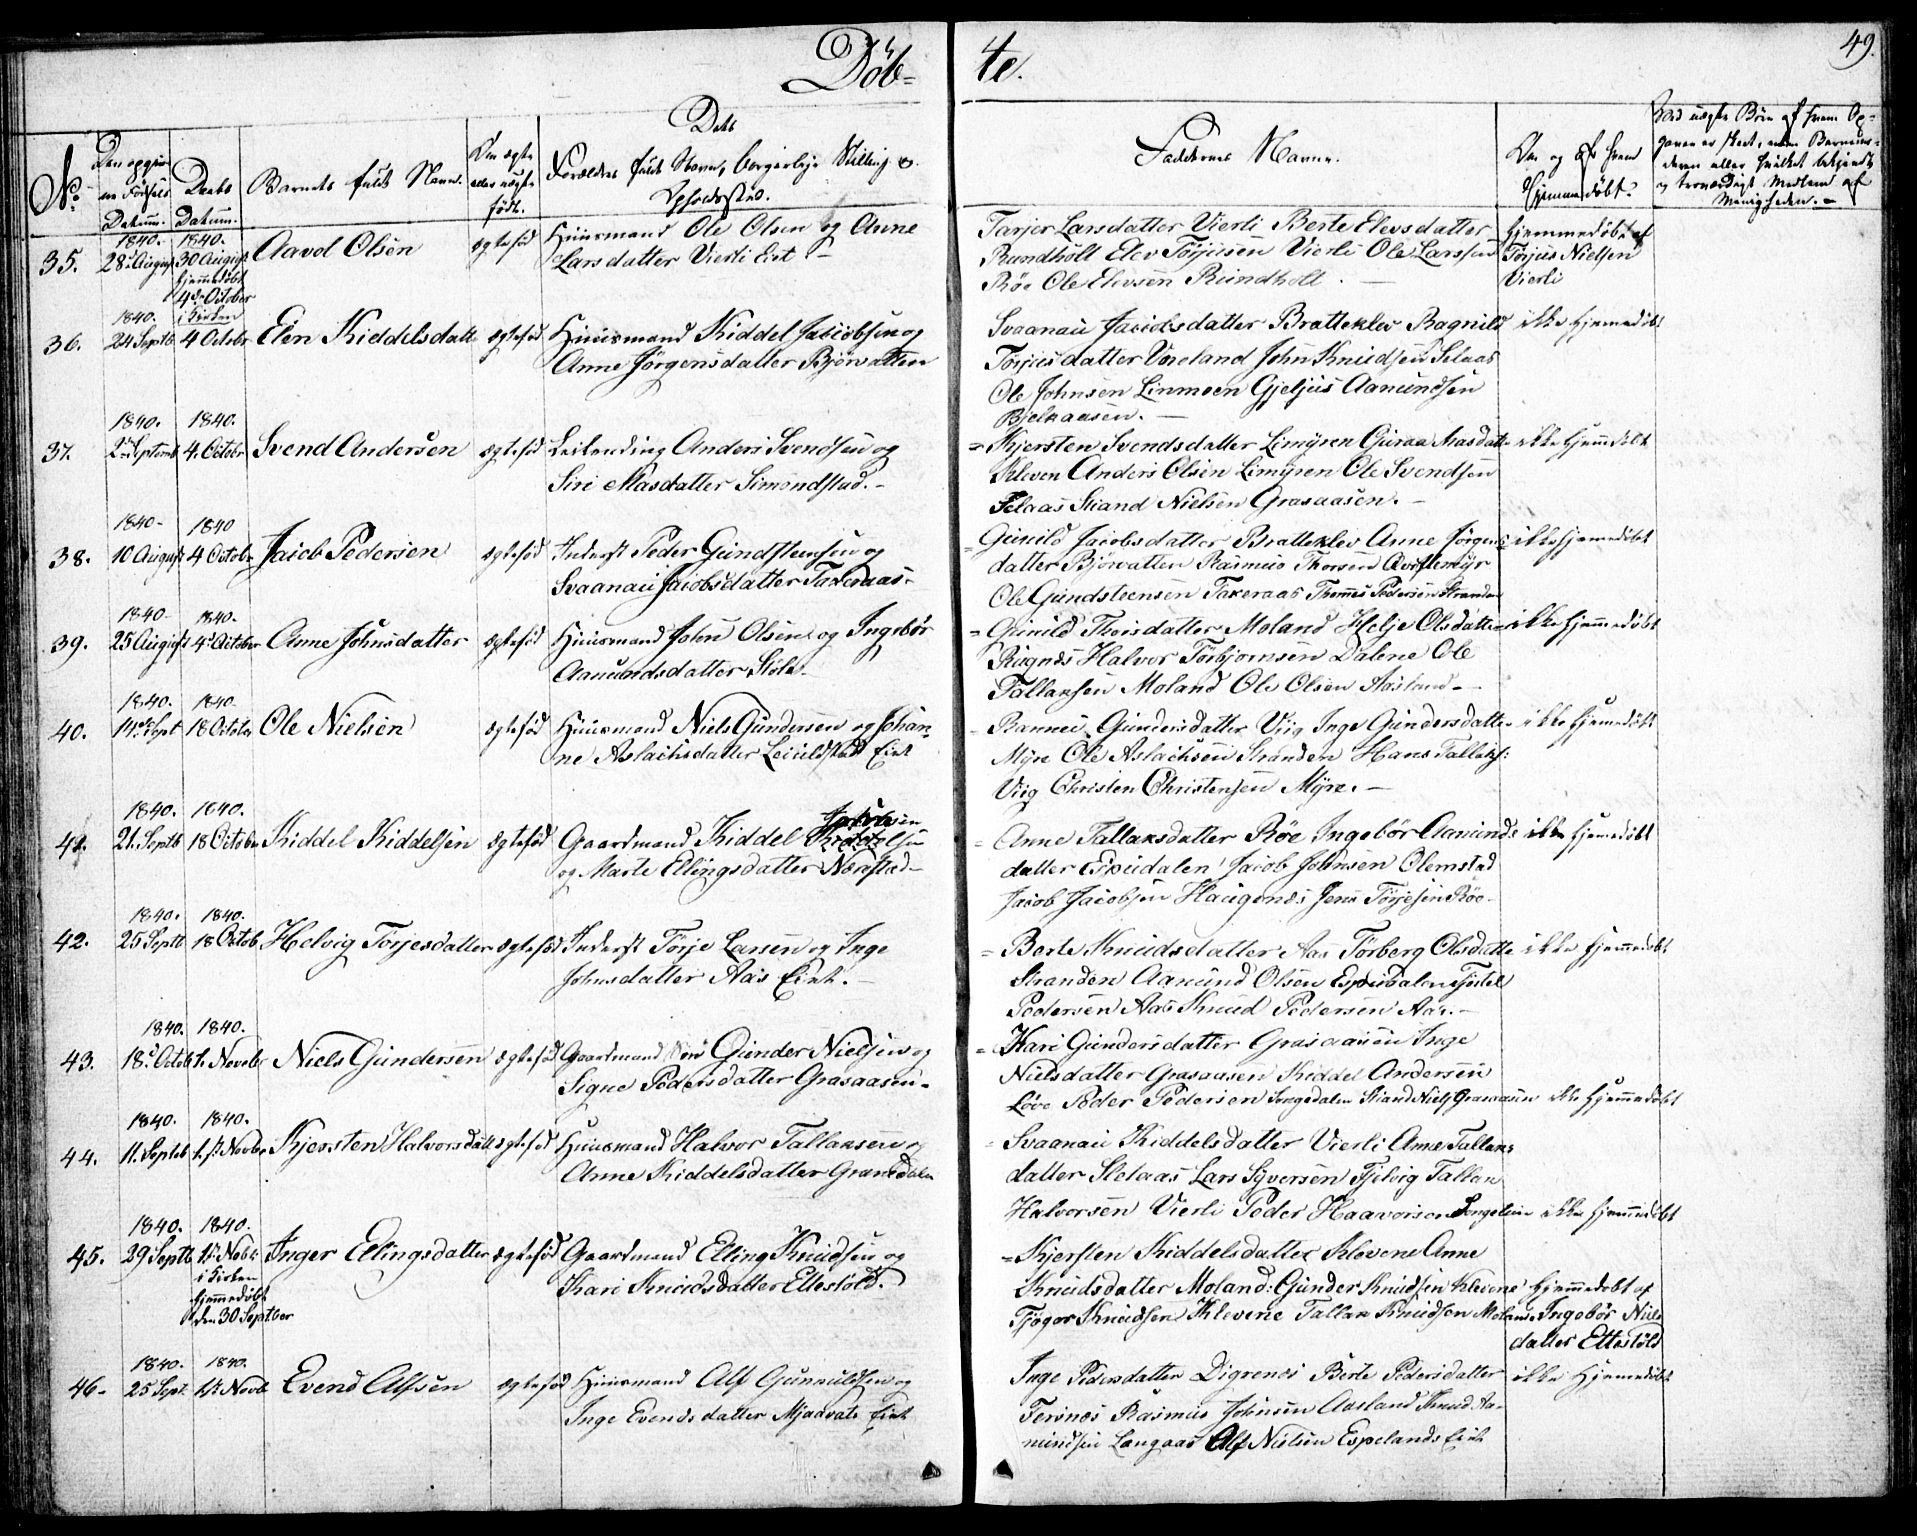 Døb-
te.
49.
No.
Den opgivne Fødsels Datum.
Daabs Datum.
Barnets fulde Navn.
Om ægte eller uægte født.
Dets Forældres fulde Navn, borgerlige Stilling og Opholdssted.
Faddernes Navne.
Om og af hvem Hjemmedøbt?
35.
1840.
28 August
1840.
30 August
hjemmedøbt
4de October
i Kirken
Aavol Olsen
ægtefød
Huusmand Ole Olsen og Anne
Larsdatter Vierli Eiet
Tarjer Larsdatter Vierli Berte Elevsdatter
Rundholt Elev Törjusen Vierli Ole Larssen
Röe Ole Elevsen Rundholt.
Hjemmedøbt af
Törjus Nielsen
Vierli
36.
1840.
24 Septb
4 Octobr
Elen Kiddelsdatt
ægtefød
Huusmand Kiddel Jacobsen og
Anne Jörgensdatter Bjorvatten
Svaanau Jacobsdatter Bratteklev Ragnild
Törjusdatter Voreland John Knudsen Selaas
Ole Johnsen Linmoen Gjeljus Aanundsen
Bjelkaasen.
ikke hjemedøbt
37.
1840.
1840.
4. Octobr
Svend Andersen
ægtefød
Leilending Anders Svendsen og
Siri Aasdatter Simondstad.
Kjersten Svendsdatter Limyren Guraa Aasdatt
Kleven Anders Olsen Limyren Ole Svendsen
Selaas Strand Nielsen Grasaasen.
ikke hjemedöbt
38.
1840
10 August
1840
4 Octobr
Jacob Pedersen
ægtefød
Inderst Peder Gundstensen og
Svaanau Jacobsdatter Takeraas
Gunild Jacobsdatter Bratteklev Anne Jörgens
datter Bjorvatten Rasmus Thorsen Qvistemyr
Ole Gundsteensen Takeraas Thomes Pedersen Stranden
ikke hjemedöbt
39.
1840
25 August
1840.
4d October
Anne Johnsdatter
ægtefød
Huusmand John Olsen og Ingebör
Aanundsdatter Stöle
Gunild Thorsdatter Moland Helje Olsdatter
Rugnes Halvor Törbjornsen Dalene Ole
Tallaksen Moland Ole Olsen Aasland
ikke hjemmedøbt
40.
1840.
14de Sept
1840.
18 October
Ole Nielsen
ægtefød
Huusmand Niels Gundersen og Johan
ne Aslachsdatter Leiulstad Eiet
Gundersdatter Viig Inge Gundersdatter
Myre Ole Aslachsen Stranden Hans Tallaks:
Viig Christen Christensen Myre.
ikke hjemedøbt
41.
1840.
21. Septb
1840.
18 Octobr
Kiddel Kiddelsen
ægtefød
Gaardmand Kiddel
og Marte Ellingsdatter Nærstad
Anne Tallaksdatter Röe Ingebör Aanunds
datter Espeidalen Jacob Johnsen Olemstad
Jacob Jacobsen Haugenes Jens Törjesen Röe
ikke hjemedøbt
42.
1840.
25 Septb
1840.
18 Octob
Helvig Torjesdatter
ægtefød
Inderst Törje Larsen og Inge
Johnsdatter Aas Eiet.
Berte Knudsdatter Aas Törberg Olsdatte
Stranden Aanund Olsen Espeidalen Kjetil
Pedersen Aas Knud Pedersen Aas.
ikke hjemedøbt
43.
1840.
18d Octob
1840.
1. Novebr
Niels Gundersen
ægtefød
Gaardmand Gunder Nielsen og
Signe Pedersdatter Grasaasen
Kari Gundersdatter Grasaasen Inge
Nielsdatter Grasaasen Kiddel Andersen
Löve Peder Pedersen Songedalen Strand Niels Grasaasen
ikke hjemmedøbt
44.
1840.
11. Septeb
1840.
1.st Novbr
Kjersten Halvorsdatt
ægtefød
Huusmand Halvor Tallaksen og
Anne Kiddelsdatter Granedalen
Svaanau Kiddelsdatter Vierli Anne Tallaks
datter Selaas Lars Syversen Fjelvig Tallak
Halvorsen Vierli Peder Haavorsen Songelien
ikke hjemmedøbt
45.
1840.
29 Septb
1840.
1st Nobr
i Kirken
hjemmedøbt
den 30 Septber
Inger Ellingsdatter
ægtefød
Gaardmand Elling Knudsen og
Kari Knudsdatter Ettestöld.
Kjersten Kiddelsdatter Klevene Anne
Knudsdatter Moland: Gunder Knudsen Klevene
Tjöger Knudsen Klevene Tallak Knudsen Moland
Hjemmedøbt af
Ingebör Niels
datter Ettestöld
46
1840.
25 Sept
1840.
1st Novb
Evend Alfsen
ægtefød
Huusmand Alf Gunnuldsen og
Inge Evendsdatter Mjaavats Eiet
Inge Pedersdatter Digrenes Berte Pedersdatter
Tersnes Rasmus Johnsen Aasland Knud Aa-
nundsen Langaas Alf Nielsen Espelands Eiet
ikke hjemedøbt